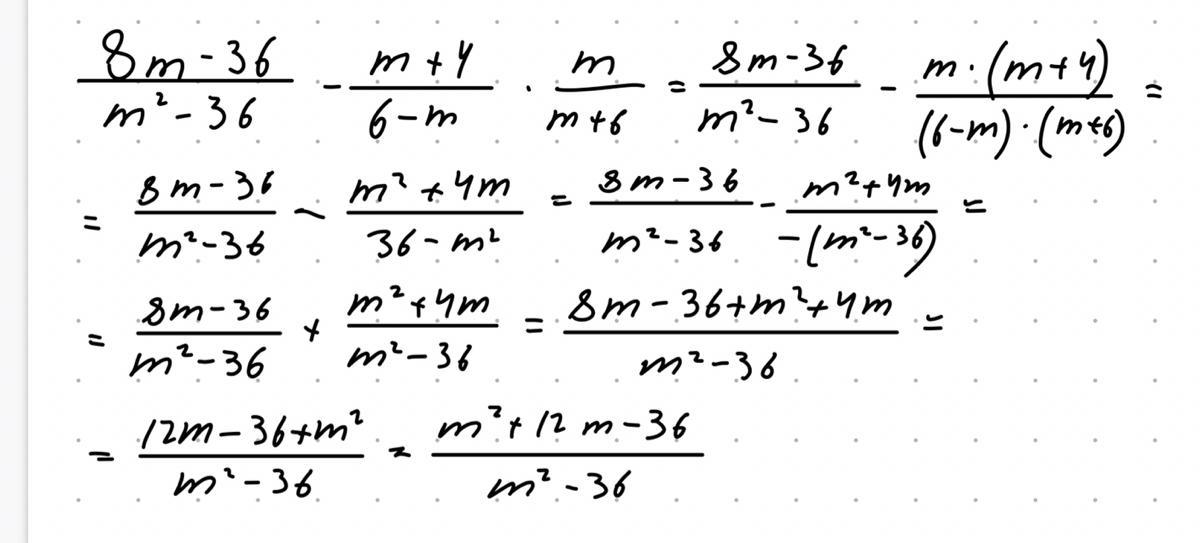 (8m-36)/(m²-36) - (m+4)/(6-m) · m/(m+6) = (8m-36)/(m²-36) - (m·(m+4))/((6-m)·(m+6)) =
= (8m-36)/(m²-36) - (m²+4m)/(36-m²) = (8m-36)/(m²-36) - (m²+4m)/(-(m²-36)) =
= (8m-36)/(m²-36) + (m²+4m)/(m²-36) = (8m-36+m²+4m)/(m²-36) =
= (12m-36+m²)/(m²-36) = (m²+12m-36)/(m²-36)